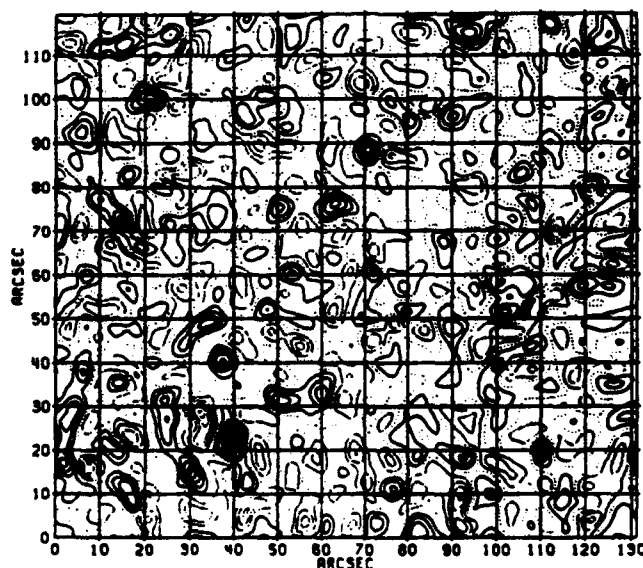 ARCSEC
110
100
90
80
70
60
50
40
30
20
10
0
0 10 20 30 40 50 60 70 80 90 100 110 120 130
ARCSEC